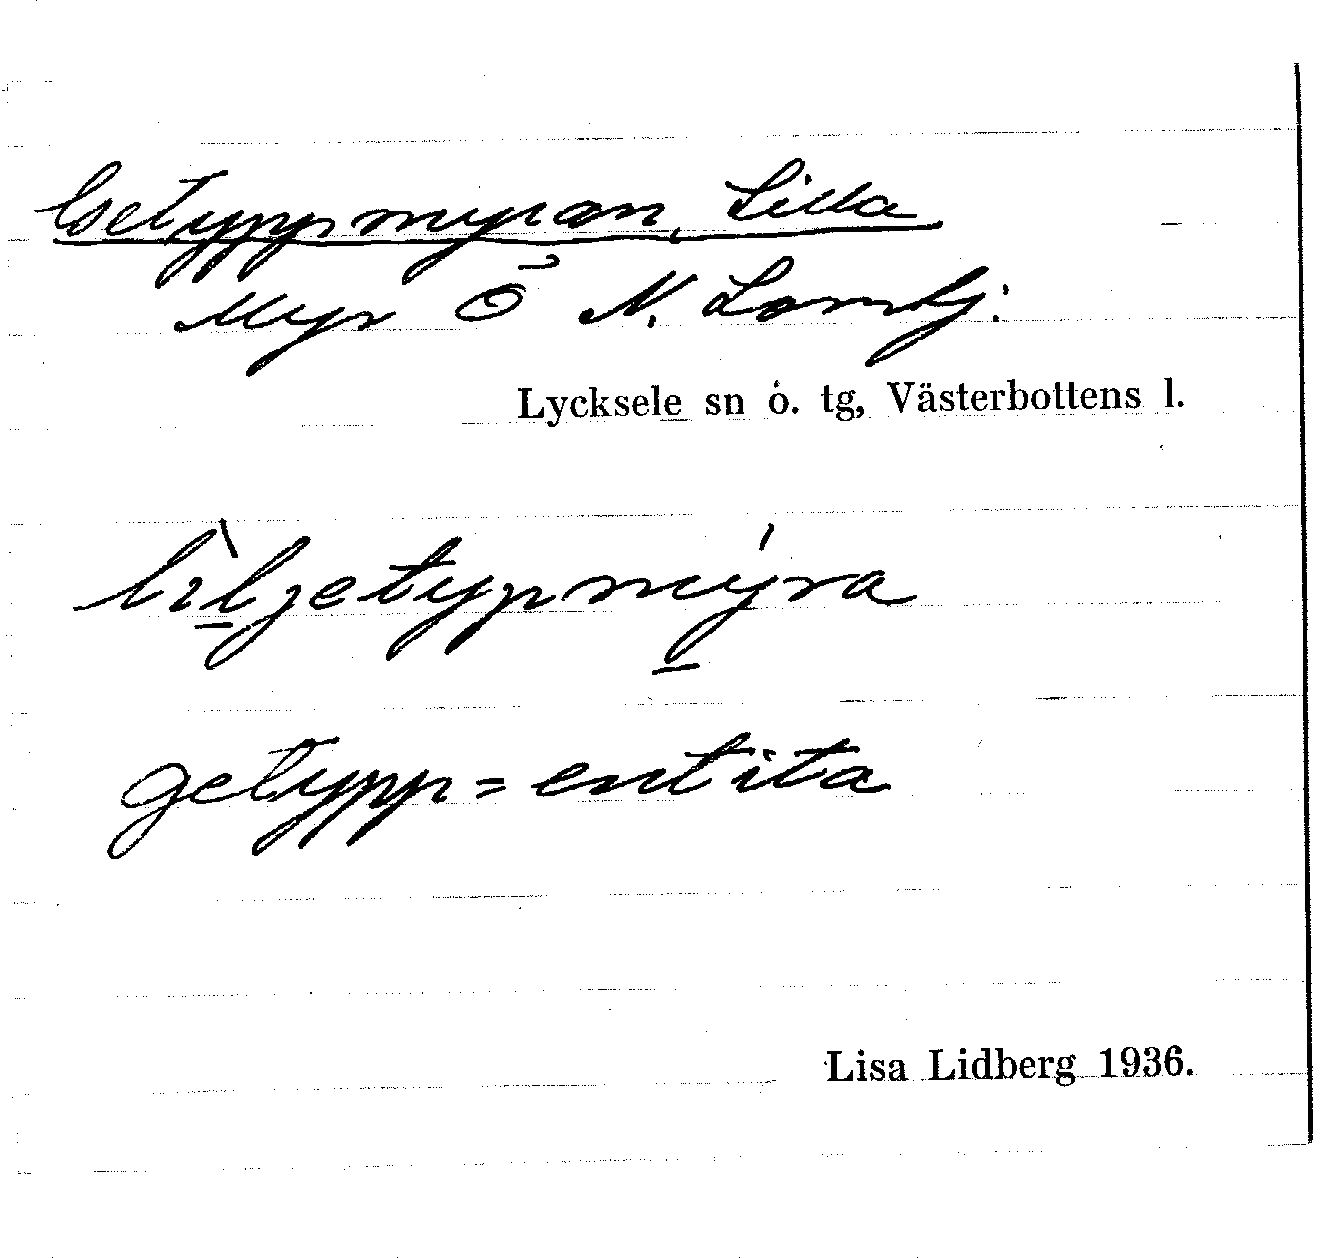 Getyppmyran, Lilla
Myr Ö N. Lomtj:
Lycksele sn ö. tg, Västerbottens l.
lìljetypmýra
getypp = entita
Lisa Lidberg 1936.